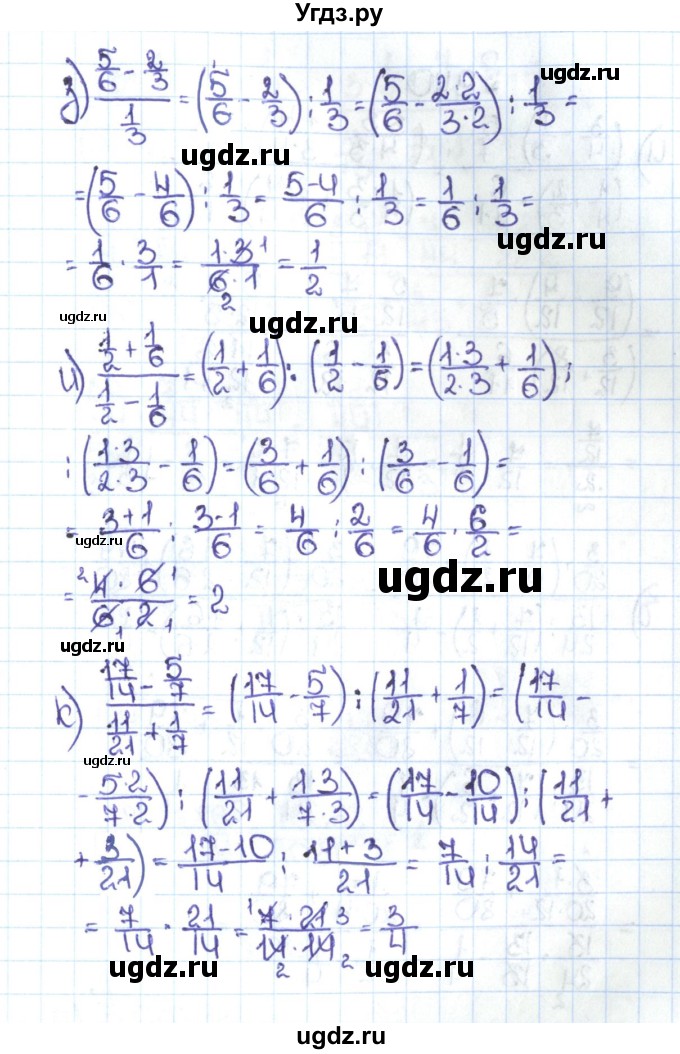 Угдз.ру
з) (5/6 - 2/3)/(1/3) = (5/6 - 2/3) : 1/3 = (5/6 - 2·2/3·2) : 1/3 =
ugdz.ru
ugdz.ru
= (5/6 - 4/6) : 1/3 = 5-4/6 : 1/3 = 1/6 : 1/3 =
ugdz.ru
= 1/6 · 3/1 = 1·3 1/6·1 2 = 1/2
ugdz.ru
ugdz.ru
и) (1/2 + 1/6)/(1/2 - 1/6) = (1/2 + 1/6) : (1/2 - 1/6) = (1·3/2·3 + 1/6) :
: (1·3/2·3 - 1/6) = (3/6 + 1/6) : (3/6 - 1/6) =
= 3+1/6 : 3-1/6 = 4/6 : 2/6 = 4/6 · 6/2 =
ugdz.ru
ugdz.ru
= 2 4·6 1/6·2 1 1 = 2
ugdz.ru
к) (17/14 - 5/7)/(11/21 + 1/7) = (17/14 - 5/7) : (11/21 + 1/7) = (17/14 -
ugdz.ru
- 5·2/7·2) : (11/21 + 1·3/7·3) = (17/14 - 10/14) : (11/21 +
+ 3/21) = 17-10/14 : 11+3/21 = 7/14 : 14/21 =
= 7/14 · 21/14 = 1 7·21 3/14·14 2 2 = 3/4
ugdz.ru
ugdz.ru
ugdz.ru